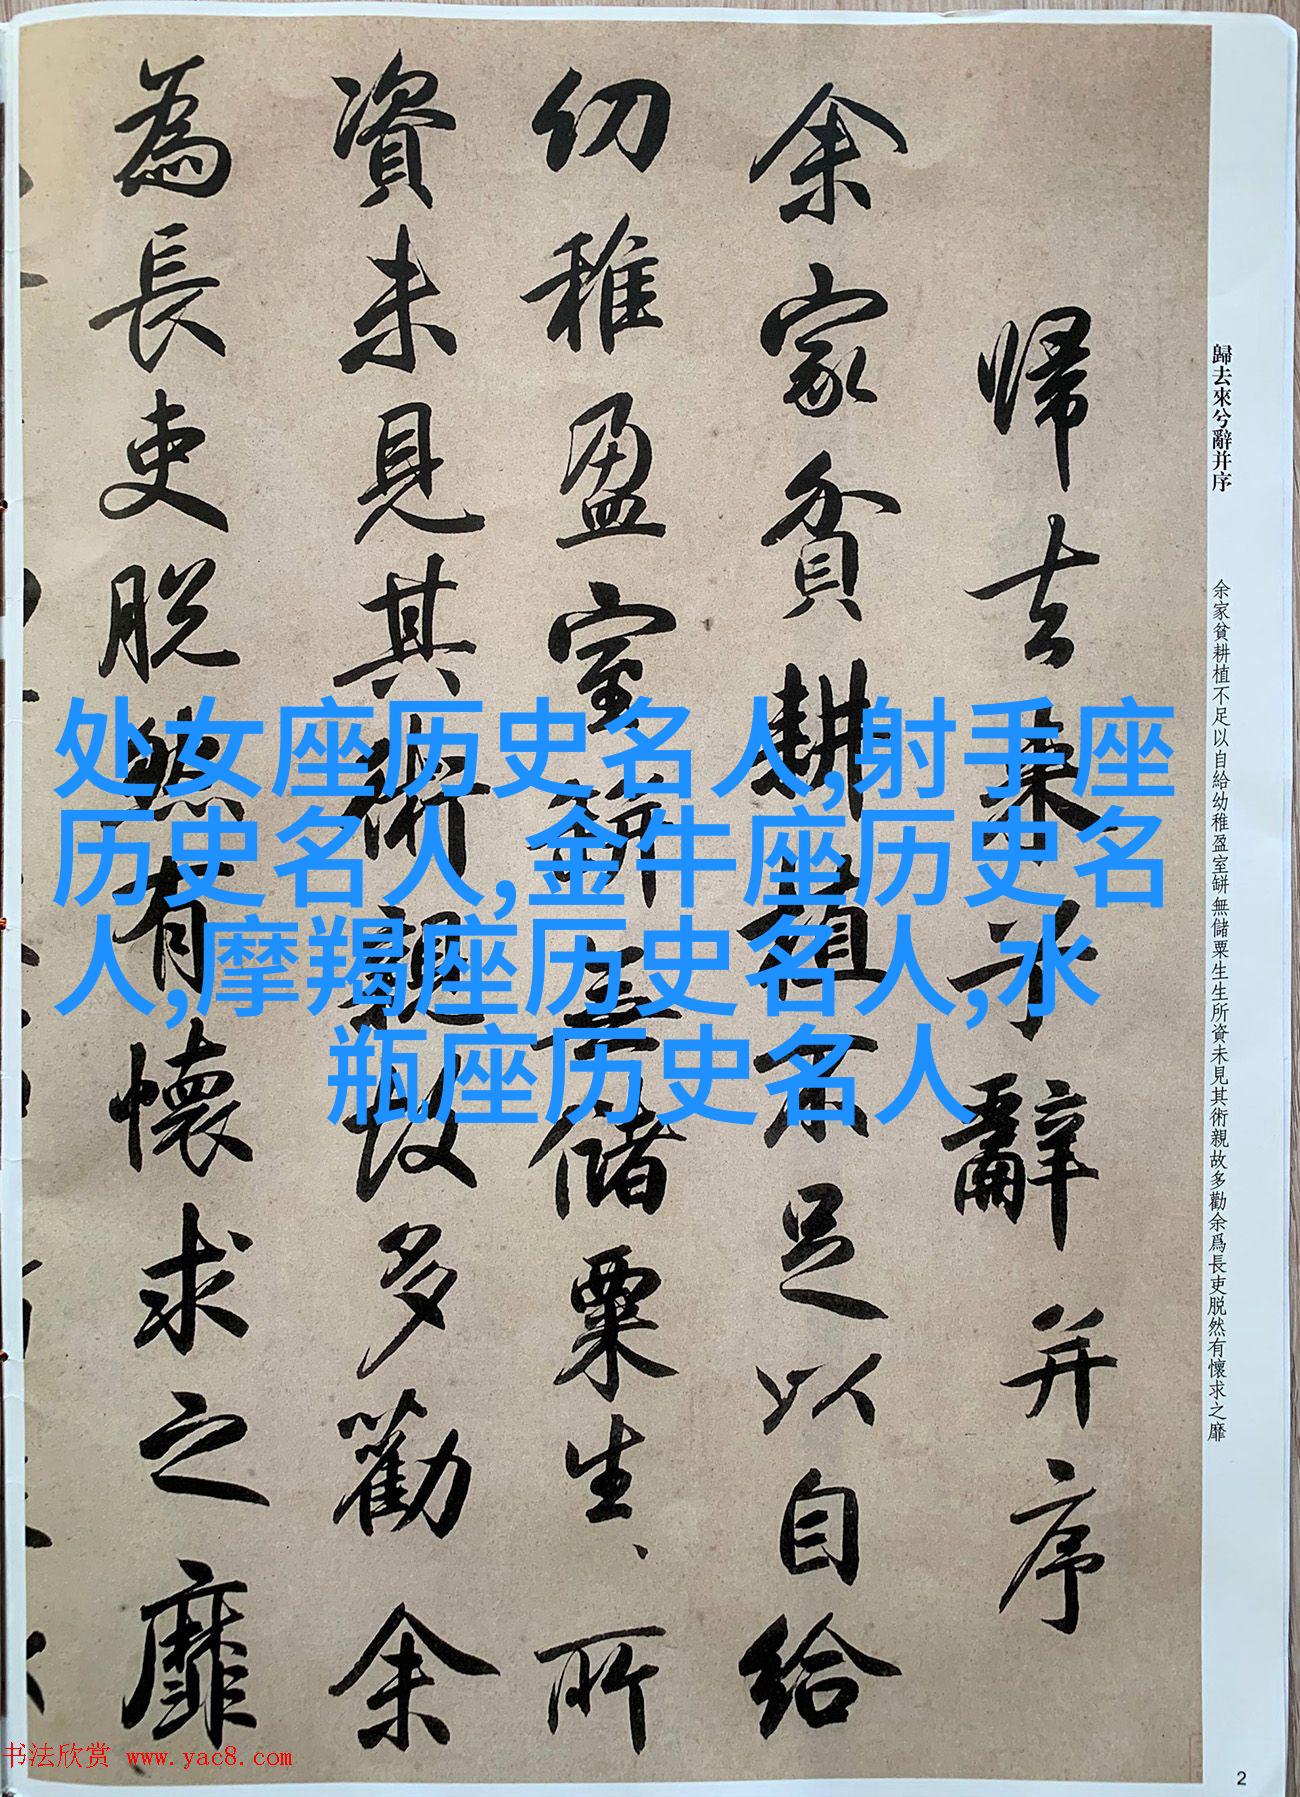 歸去來兮辭并序
余家貧耕植不足以自給幼稚盈室缾無儲粟生生所資未見其術親故多勸余爲長吏脱然有懷求之靡
歸去來兮辭并序
余家貧耕植不足以自給
幼稚盈室缾無儲粟生、所
資未見其術親故多勸余
為長吏脱然有懷求之靡
处女座历史名人,射手座
历史名人,金牛座历史名
人,摩羯座历史名人,水
瓶座历史名人
书法欣赏 www.yac8.com
2